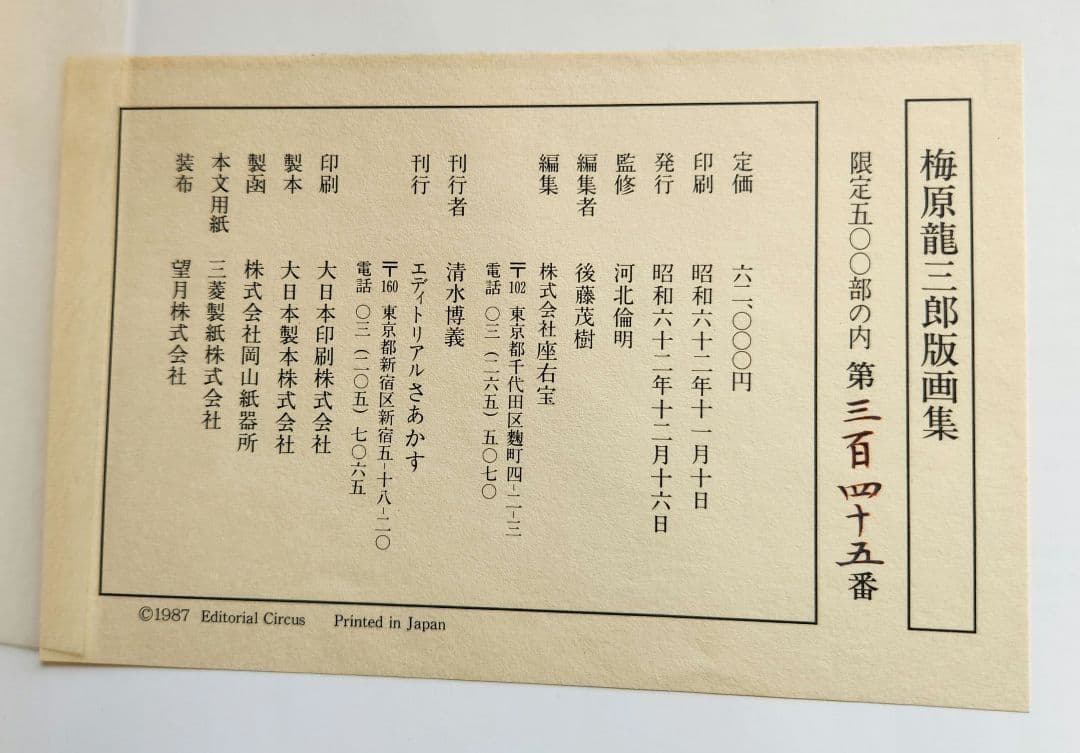 梅原龍三郎版画集
限定五〇〇部の内 第三百四十五番
定価 六二、〇〇〇円
印刷 昭和六十二年十一月十日
発行 昭和六十二年十二月十六日
監修 河北倫明
編集者 後藤茂樹
編集 株式会社座右宝
〒102 東京都千代田区麹町四-二-三
電話 〇三(二六五)五〇七〇
刊行者 清水博義
刊行 エディトリアルさあかす
〒160 東京都新宿区新宿五-十八-二〇
電話 〇三(二〇五)七〇六五
印刷 大日本印刷株式会社
製本 大日本製本株式会社
製函 株式会社岡山紙器所
本文用紙 三菱製紙株式会社
装布 望月株式会社
©1987 Editorial Circus Printed in Japan